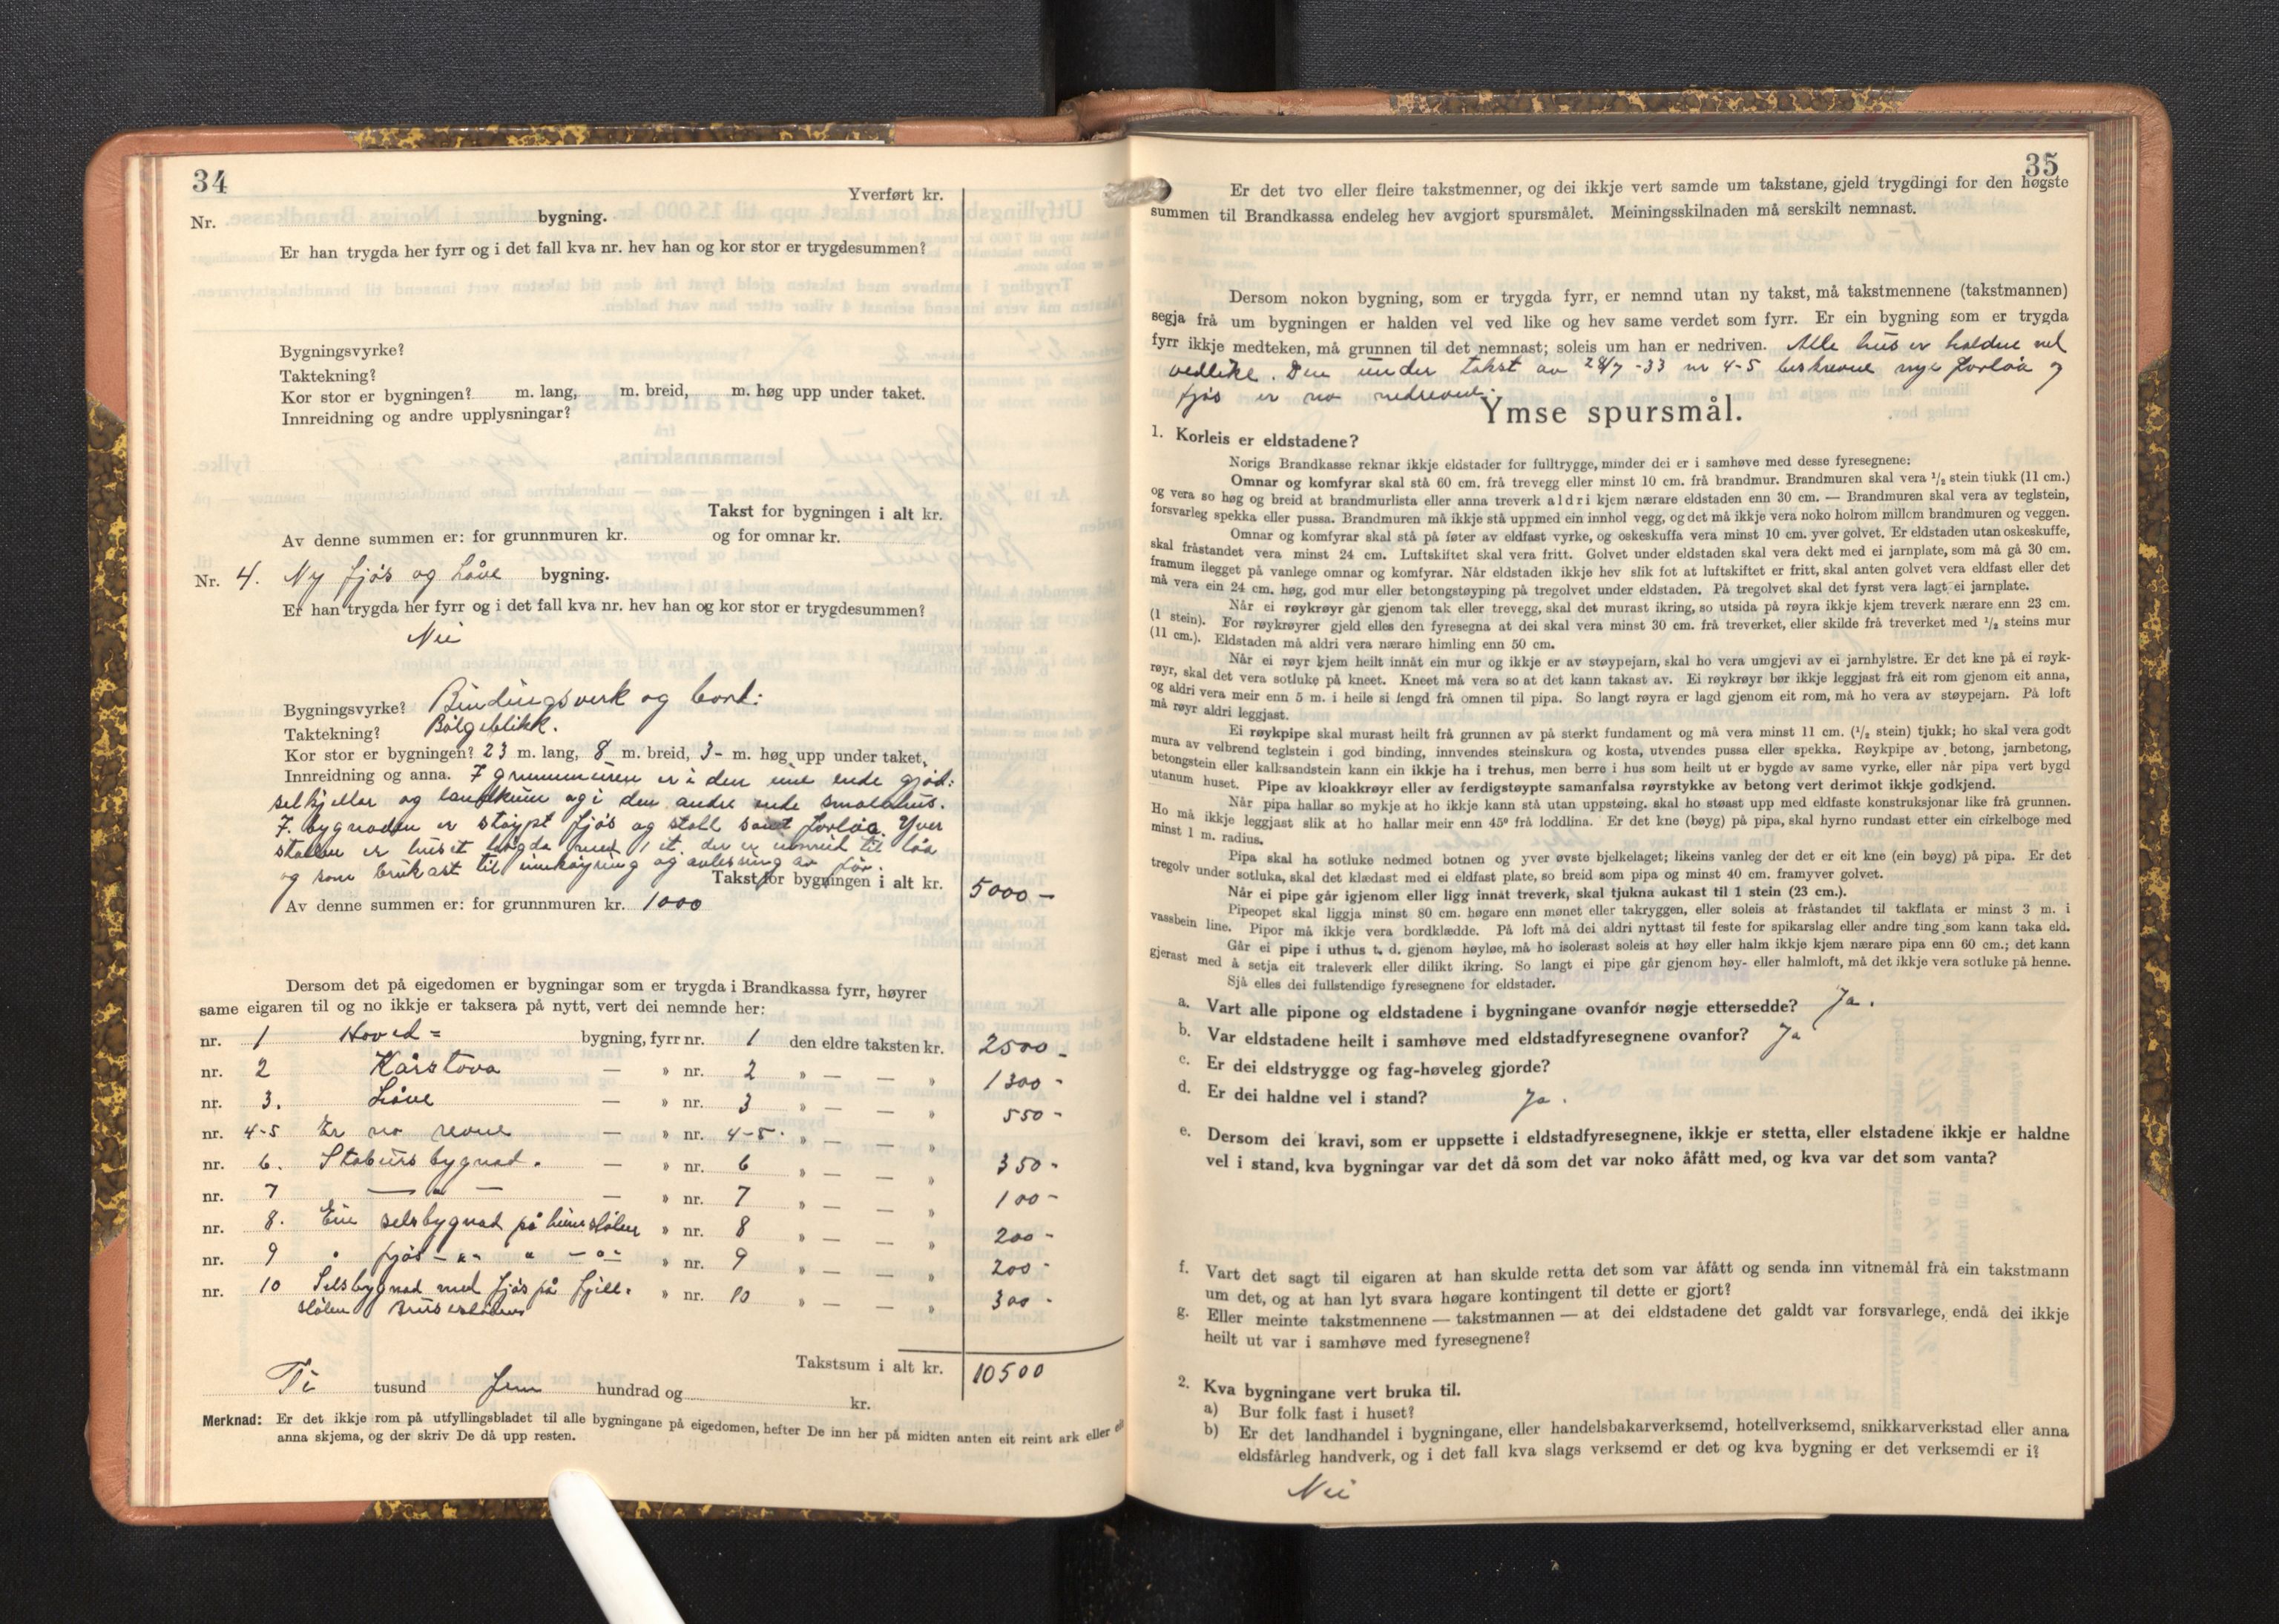 34
Yverført kr.
Nr. bygning.
Er han trygda her fyrr og i det fall kva nr. hev han og kor stor er trygdesummen?
Bygningsvyrke?
Taktekning?
Kor stor er bygningen? m. lang, m. breid, m. høg upp under taket.
Innreidning og andre upplysningar?
Takst for bygningen i alt kr.
Av denne summen er: for grunnmuren kr. og for omnar kr.
Nr. 4. Ny fjøs og Løve bygning.
Er han trygda her fyrr og i det fall kva nr. hev han og kor stor er trygdesummen?
Nei
Bygningsvyrke? Bindingsverk og bord:
Taktekning? Bølgeblikk.
Kor stor er bygningen? 23 m. lang, 8 m. breid, 3- m. høg upp under taket.
Innreidning og anna. I grunnmuren er i den eine ende gjød:
selkjellar og landkum og i den andre ende smalahus.
I. bygnaden er støypt fjøs og stall samt forløa. Yver
stallen er huset bygda med 1 et. der er innreid til løa
og som brukast til innkøyring og avlessing av fòr.
Takst for bygningen i alt kr. 5000 -
Av denne summen er: for grunnmuren kr. 1000
Dersom det på eigedomen er bygningar som er trygda i Brandkassa fyrr, høyrer
same eigaren til og no ikkje er taksera på nytt, vert dei nemnde her:
nr. 1 Hoved = bygning, fyrr nr. 1 den eldre taksten kr. 2500 -
nr. 2 Kårstova — » nr. 2 » — — » 1300 -
nr. 3. Løve — » nr. 3 » — — » 550 -
nr. 4-5 Er no revne — » nr. 4-5. » — — »
nr. 6. Stabursbygnad. — » nr. 6 » — — » 350 -
nr. 7 — " — — » nr. 7 » — — » 100 -
nr. 8. Ein selsbygnad på heimstølen » nr. 8 » — — » 200 -
nr. 9 " fjøs - " - " - " - » nr. 9 » — — » 200 -
nr. 10 Selsbygnad med fjøs på fjell- » nr. 10 » — — » 300 -
stølen
Takstsum i alt kr. 10500
Ti tusund fem hundrad og kr.
Merknad: Er det ikkje rom på utfyllingsbladet til alle bygningane på eigedomen, hefter De inn her på midten anten eit reint ark eller eit
anna skjema, og der skriv De då upp resten.
35
Er det tvo eller fleire takstmenner, og dei ikkje vert samde um takstane, gjeld trygdingi for den høgste
summen til Brandkassa endeleg hev avgjort spursmålet. Meiningsskilnaden må serskilt nemnast.
Dersom nokon bygning, som er trygda fyrr, er nemnd utan ny takst, må takstmennene (takstmannen)
segja frå um bygningen er halden vel ved like og hev same verdet som fyrr. Er ein bygning som er trygda
fyrr ikkje medteken, må grunnen til det nemnast; soleis um han er nedriven. Alle hus er haldne vel
vedlike. Den under takst av 28/7 -33 nr 4-5 beskrevne nye forløa og
fjøs er no nedrevne.
Ymse spursmål.
1. Korleis er eldstadene?
Norigs Brandkasse reknar ikkje eldstader for fulltrygge, minder dei er i samhøve med desse fyresegnene:
Omnar og komfyrar skal stå 60 cm. frå trevegg eller minst 10 cm. frå brandmur. Brandmuren skal vera 1/2 stein tjukk (11 cm.)
og vera so høg og breid at brandmurlista eller anna treverk aldri kjem nærare eldstaden enn 30 cm. — Brandmuren skal vera av teglstein,
forsvarleg spekka eller pussa. Brandmuren må ikkje stå uppmed ein innhol vegg, og det må ikkje vera noko holrom millom brandmuren og veggen.
Omnar og komfyrar skal stå på føter av eldfast vyrke, og oskeskuffa vera minst 10 cm. yver golvet. Er eldstaden utan oskeskuffe,
skal fråstandet vera minst 24 cm. Luftskiftet skal vera fritt. Golvet under eldstaden skal vera dekt med ei jarnplate, som må gå 30 cm.
framum ilegget på vanlege omnar og komfyrar. Når eldstaden ikkje hev slik fot at luftskiftet er fritt, skal anten golvet vera eldfast eller det
må vera ein 24 cm. høg, god mur eller betongstøyping på tregolvet under eldstaden. På tregolvet skal det fyrst vera lagt ei jarnplate.
Når ei røykrøyr går gjenom tak eller trevegg, skal det murast ikring, so utsida på røyra ikkje kjem treverk nærare enn 23 cm.
(1 stein). For røykrøyrer gjeld elles den fyresegna at dei skal vera minst 30 cm. frå treverket, eller skilde frå treverket med 1/2 steins mur
(11 cm.). Eldstaden må aldri vera nærare himling enn 50 cm.
Når ei røyr kjem heilt innåt ein mur og ikkje er av støypejarn, skal ho vera umgjevi av ei jarnhylstre. Er det kne på ei røyk-
røyr, skal det vera sotluke på kneet. Kneet må vera so at det kann takast av. Ei røykrøyr bør ikkje leggjast frå eit rom gjenom eit anna,
og aldri vera meir enn 5 m. i heile si lengd frå omnen til pipa. So langt røyra er lagd gjenom eit rom, må ho vera av støypejarn. På loft
må røyr aldri leggjast.
Ei røykpipe skal murast heilt frå grunnen av på sterkt fundament og må vera minst 11 cm. (1/2 stein) tjukk; ho skal vera godt
mura av velbrend teglstein i god binding, innvendes steinskura og kosta, utvendes pussa eller spekka. Røykpipe av betong, jarnbetong,
betongstein eller kalksandstein kann ein ikkje ha i trehus, men berre i hus som heilt ut er bygde av same vyrke, eller når pipa vert bygd
utanum huset. Pipe av kloakkrøyr eller av ferdigstøypte samanfalsa røyrstykke av betong vert derimot ikkje godkjend.
Når pipa hallar so mykje at ho ikkje kann stå utan uppstøing, skal ho støast upp med eldfaste konstruksjonar like frå grunnen.
Ho må ikkje leggjast slik at ho hallar meir enn 45° frå loddlina. Er det kne (bøyg) på pipa, skal hyrno rundast etter ein cirkelboge med
minst 1 m. radius.
Pipa skal ha sotluke nedmed botnen og yver øvste bjelkelaget; likeins vanleg der det er eit kne (ein bøyg) på pipa. Er det
tregolv under sotluka, skal det klædast med ei eldfast plate, so breid som pipa og minst 40 cm. framyver golvet.
Når ei pipe går igjenom eller ligg innåt treverk, skal tjukna aukast til 1 stein (23 cm.).
Pipeopet skal liggja minst 80 cm. høgare enn mønet eller takryggen, eller soleis at fråstandet til takflata er minst 3 m. i
vassbein line. Pipor må ikkje vera bordklædde. På loft må dei aldri nyttast til feste for spikarslag eller andre ting som kann taka eld.
Går ei pipe i uthus t. d. gjenom høyløe, må ho isolerast soleis at høy eller halm ikkje kjem nærare pipa enn 60 cm.; det kann
gjerast med å setja eit traleverk eller dilikt ikring. So langt ei pipe går gjenom høy- eller halmloft, må det ikkje vera sotluke på henne.
Sjå elles dei fullstendige fyresegnene for eldstader.
a. Vart alle pipone og eldstadene i bygningane ovanfor nøgje ettersedde? Ja.
b. Var eldstadene heilt i samhøve med eldstadfyresegnene ovanfor? Ja
c. Er dei eldstrygge og fag-høveleg gjorde?
d. Er dei haldne vel i stand? Ja.
e. Dersom dei kravi, som er uppsette i eldstadfyresegnene, ikkje er stetta, eller elstadene ikkje er haldne
vel i stand, kva bygningar var det då som det var noko åfått med, og kva var det som vanta?
f. Vart det sagt til eigaren at han skulde retta det som var åfått og senda inn vitnemål frå ein takstmann
um det, og at han lyt svara høgare kontingent til dette er gjort?
g. Eller meinte takstmennene — takstmannen — at dei eldstadene det galdt var forsvarlege, endå dei ikkje
heilt ut var i samhøve med fyresegnene?
2. Kva bygningane vert bruka til.
a) Bur folk fast i huset?
b) Er det landhandel i bygningane, eller handelsbakarverksemd, hotellverksemd, snikkarverkstad eller anna
eldsfårleg handverk, og i det fall kva slags verksemd er det og kva bygning er det verksemdi er i?
Nei